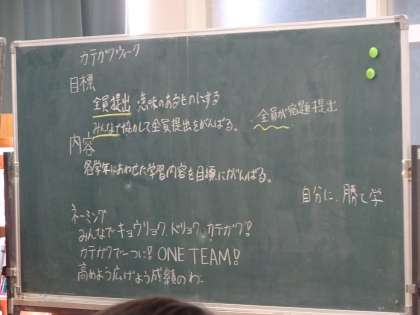 カテガクウィーク
目標
全員提出 意味のあるものにする
みんなで協力して全員提出をがんばる。
全員が宿題提出
内容
各学年にあわせた学習内容を目標にがんばる。
自分に、勝て学
ネーミング
みんなでキョウリョク ドリョク カテガク!
カテガクで一つに! ONE TEAM!
高めよう広げよう成績のわ